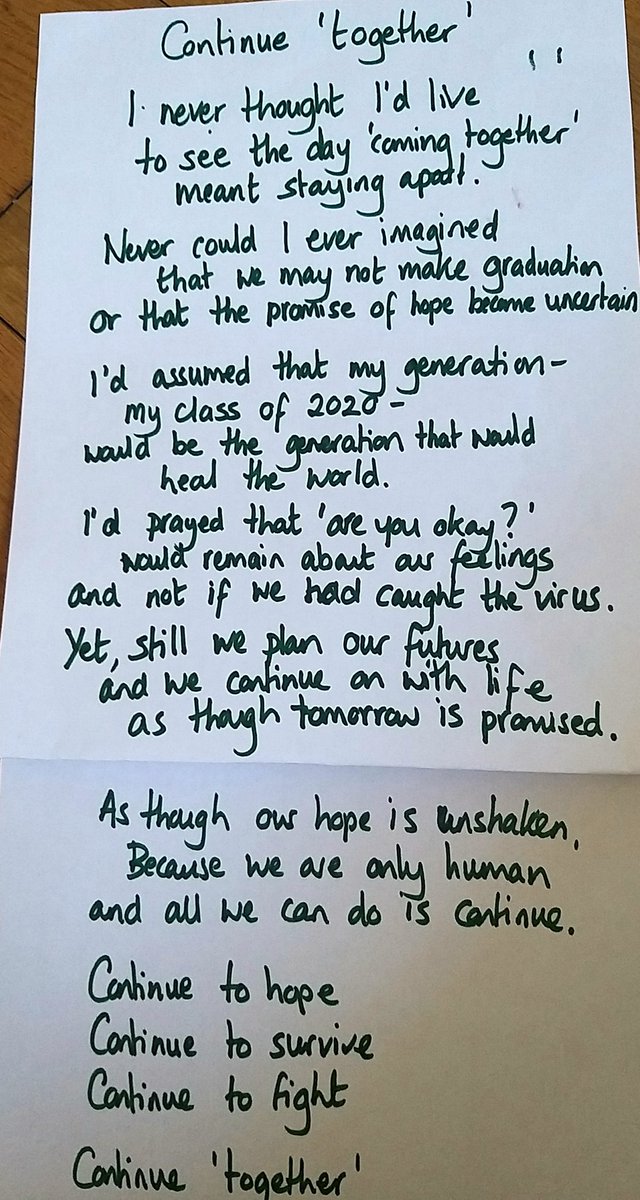 Continue 'together'
I never thought I'd live
to see the day 'coming together'
meant staying apart.
Never could I ever imagined
that we may not make graduation
or that the promise of hope became uncertain
I'd assumed that my generation-
my class of 2020-
would be the generation that would
heal the world.
I'd prayed that 'are you okay?'
would remain about our feelings
and not if we had caught the virus.
Yet, still we plan our futures
and we continue on with life
as though tomorrow is promised.
As though our hope is unshaken,
Because we are only human
and all we can do is continue.
Continue to hope
Continue to survive
Continue to fight
Continue 'together'